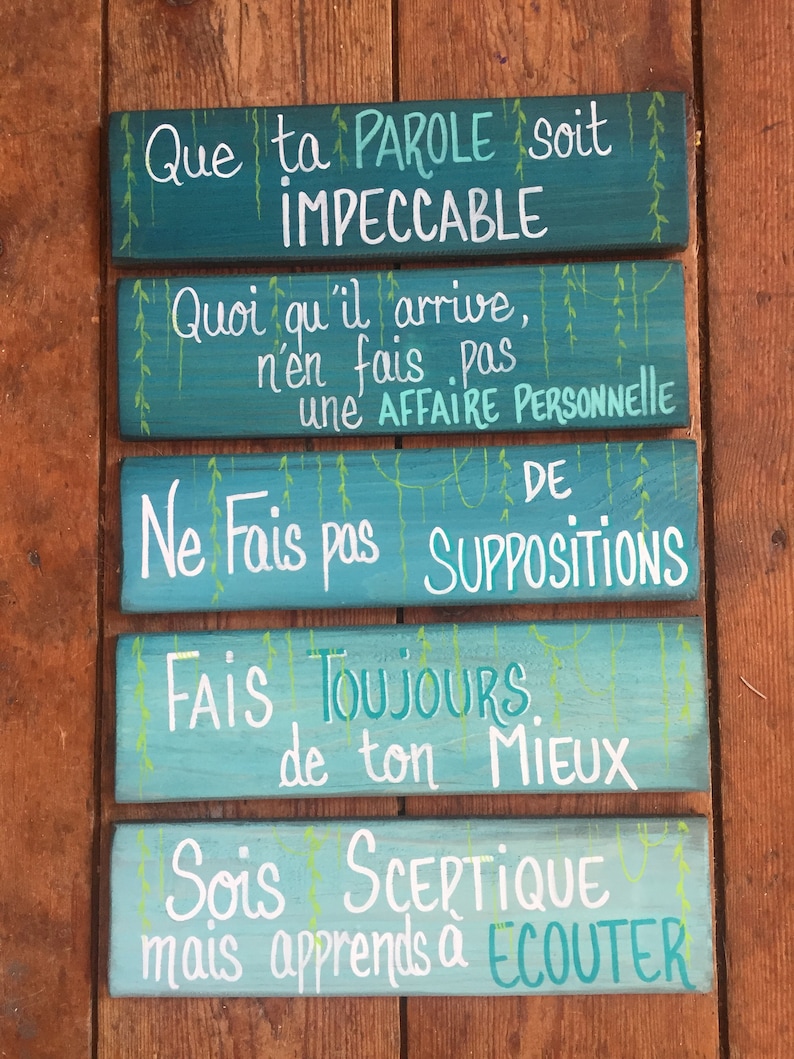 Que ta PAROLE soit
IMPECCABLE
Quoi qu'il arrive,
n'en fais pas
une AFFAIRE PERSONNELLE
DE
Ne Fais pas SUPPOSITIONS
FAIS TOUJOURS
de ton MIEUX
Sois SCEPTIQUE
mais apprends à ECOUTER